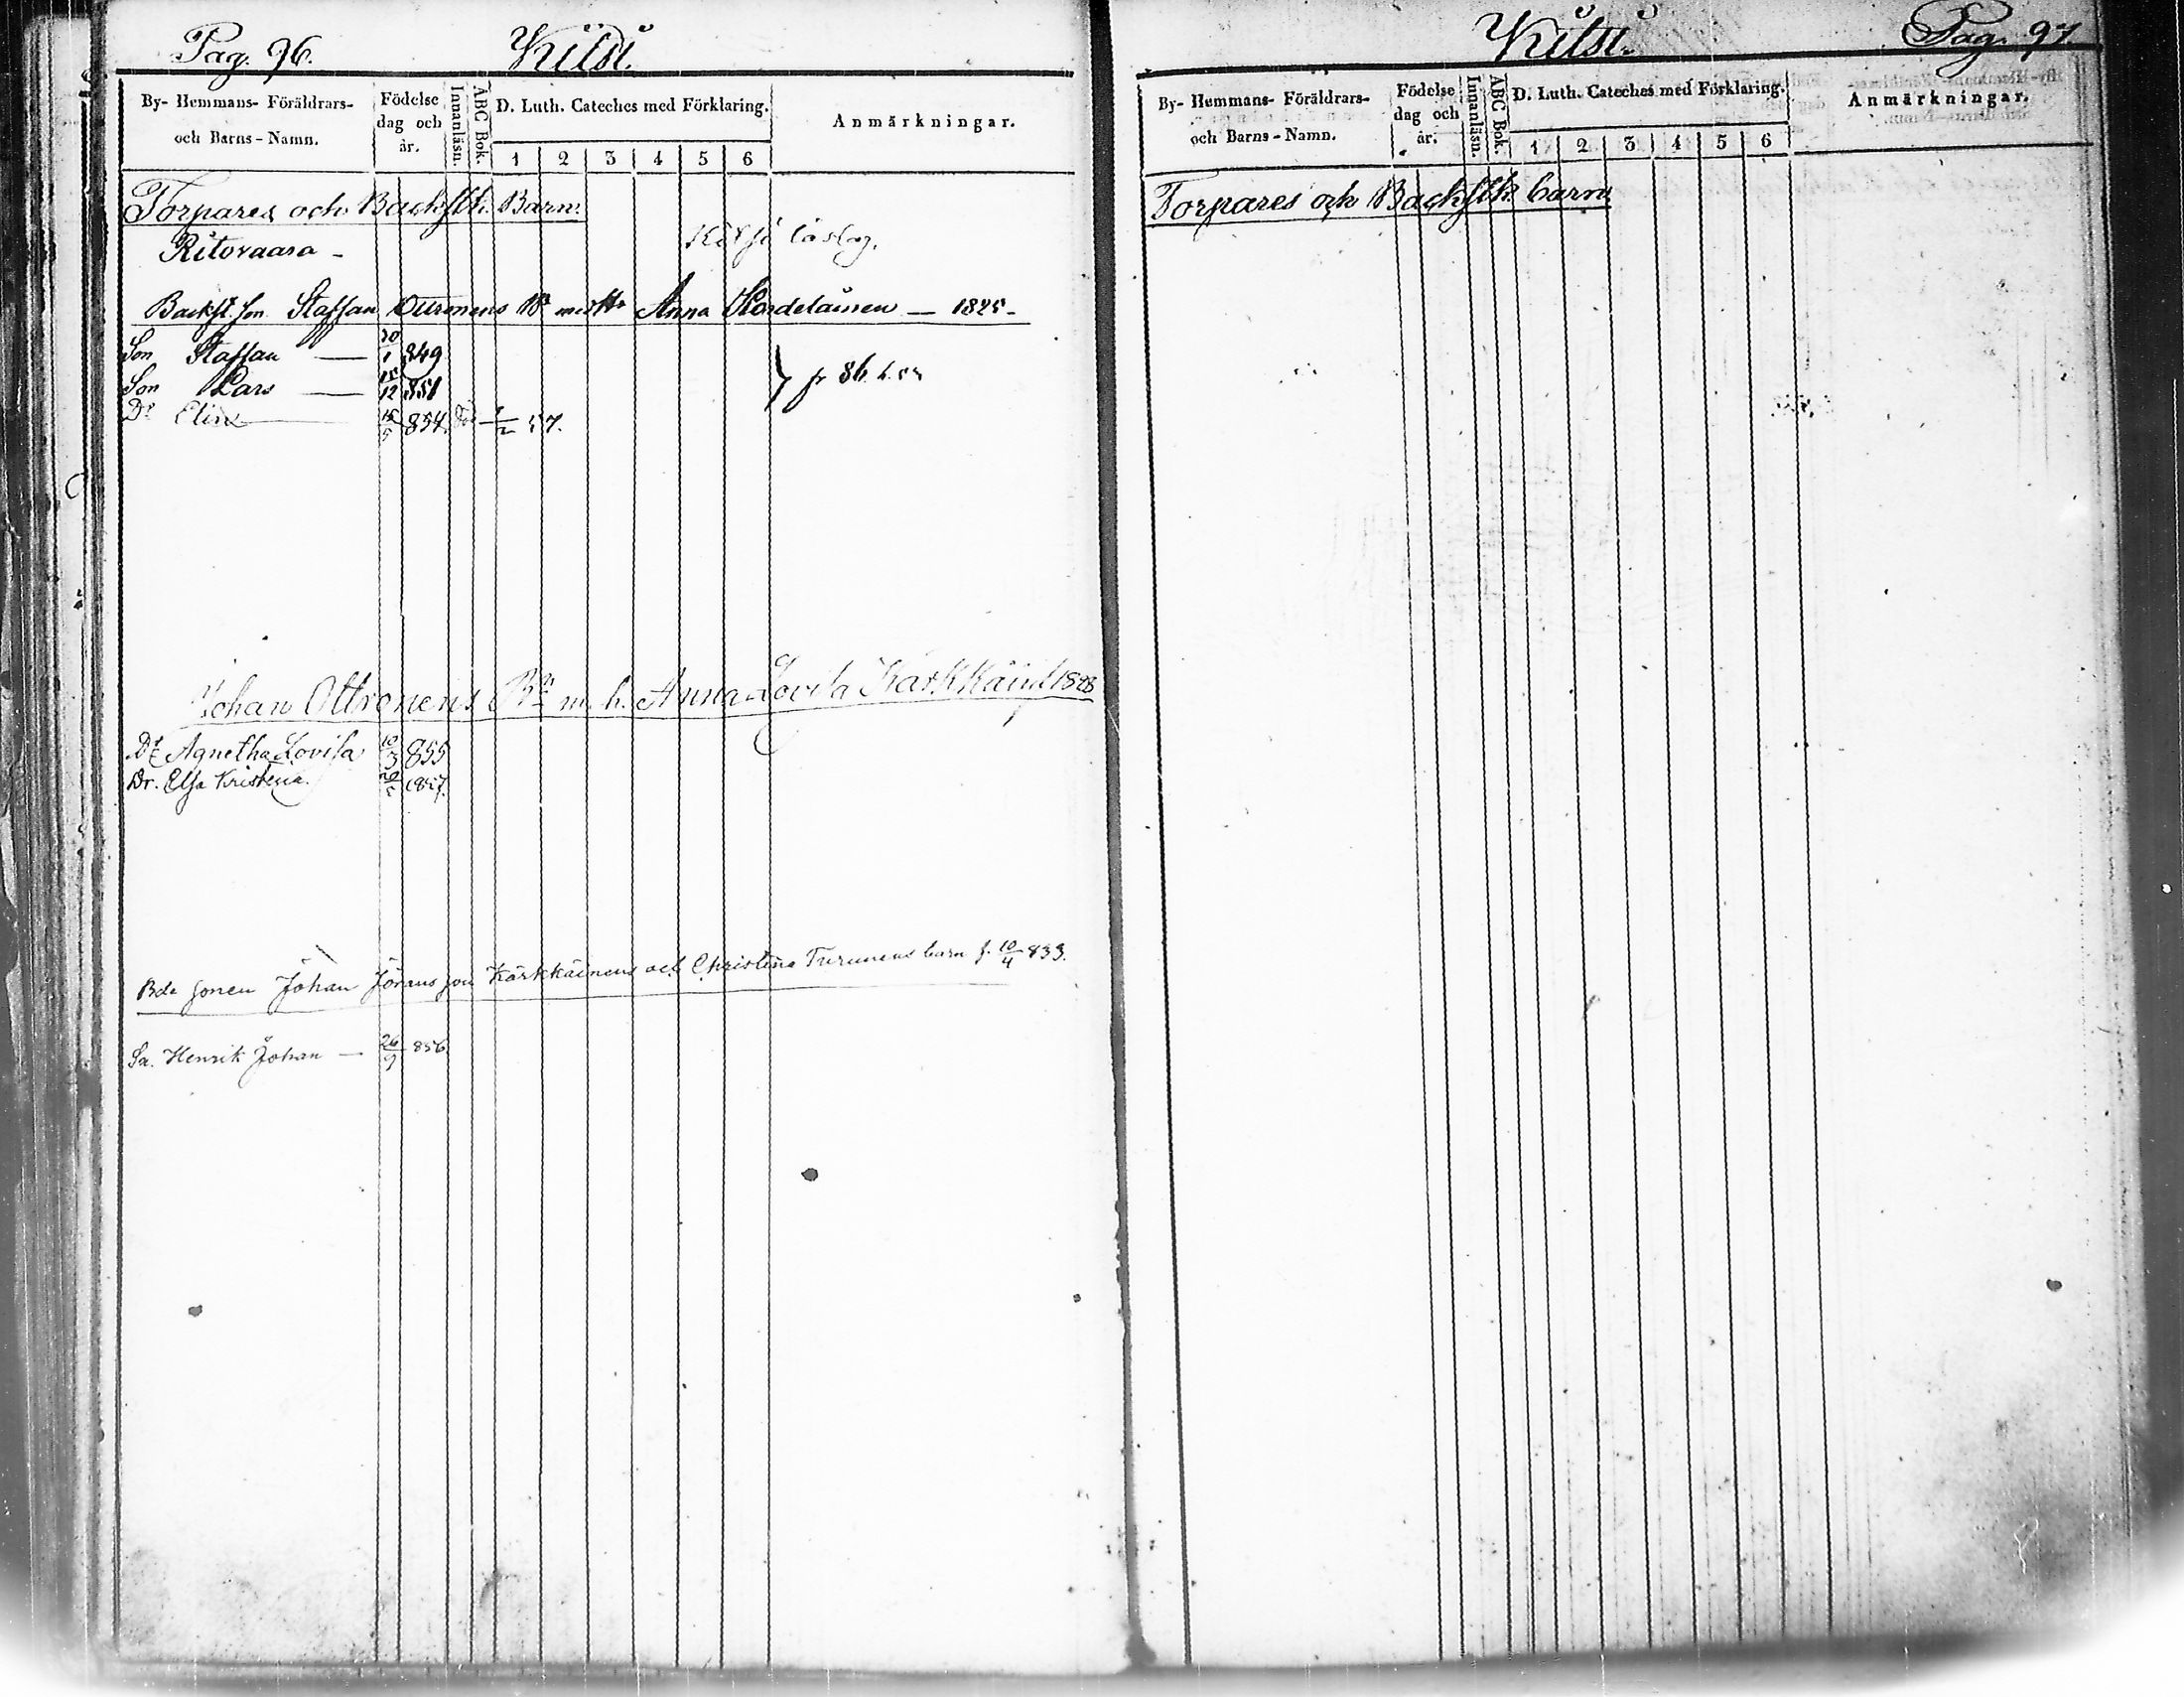 Pag. 96. Kitsi.
By- Hemmans- Föräldrars- och Barns-Namn.
Födelse dag och år.
Innanläsn.
ABC Bok.
D. Luth. Cateches med Förklaring.
1 2 3 4 5 6
Anmärkningar.
Torpares och Backsth. Barn.
Ritovaara - Kitsi läslag.
Backst. son Staffan Ottronens Bn med H. Anna Hordelainen — 1825-
Son Staffan — 849
Son Lars — /12 851 fr 86
Dr Elin 15/5 854. 1/2 57.
Johan Ottronens Bn m. h. Anna Lovisa Kärkkäin
Dr Agnetha Lovisa 10/3 855
Dr. Elsa Kristina. 1857.
Bde sonen Johan Jöransson Kärkkäinens och Christina Turunens barn f. 10/4 833.
Sn. Henrik Johan — 26/9 856
Kitsi. Pag. 97.
By- Hemmans- Föräldrars- och Barns-Namn.
Födelse dag och år.
Innanläsn.
ABC Bok.
D. Luth. Cateches med Förklaring.
1 2 3 4 5 6
Anmärkningar.
Torpares och Backsth. barn